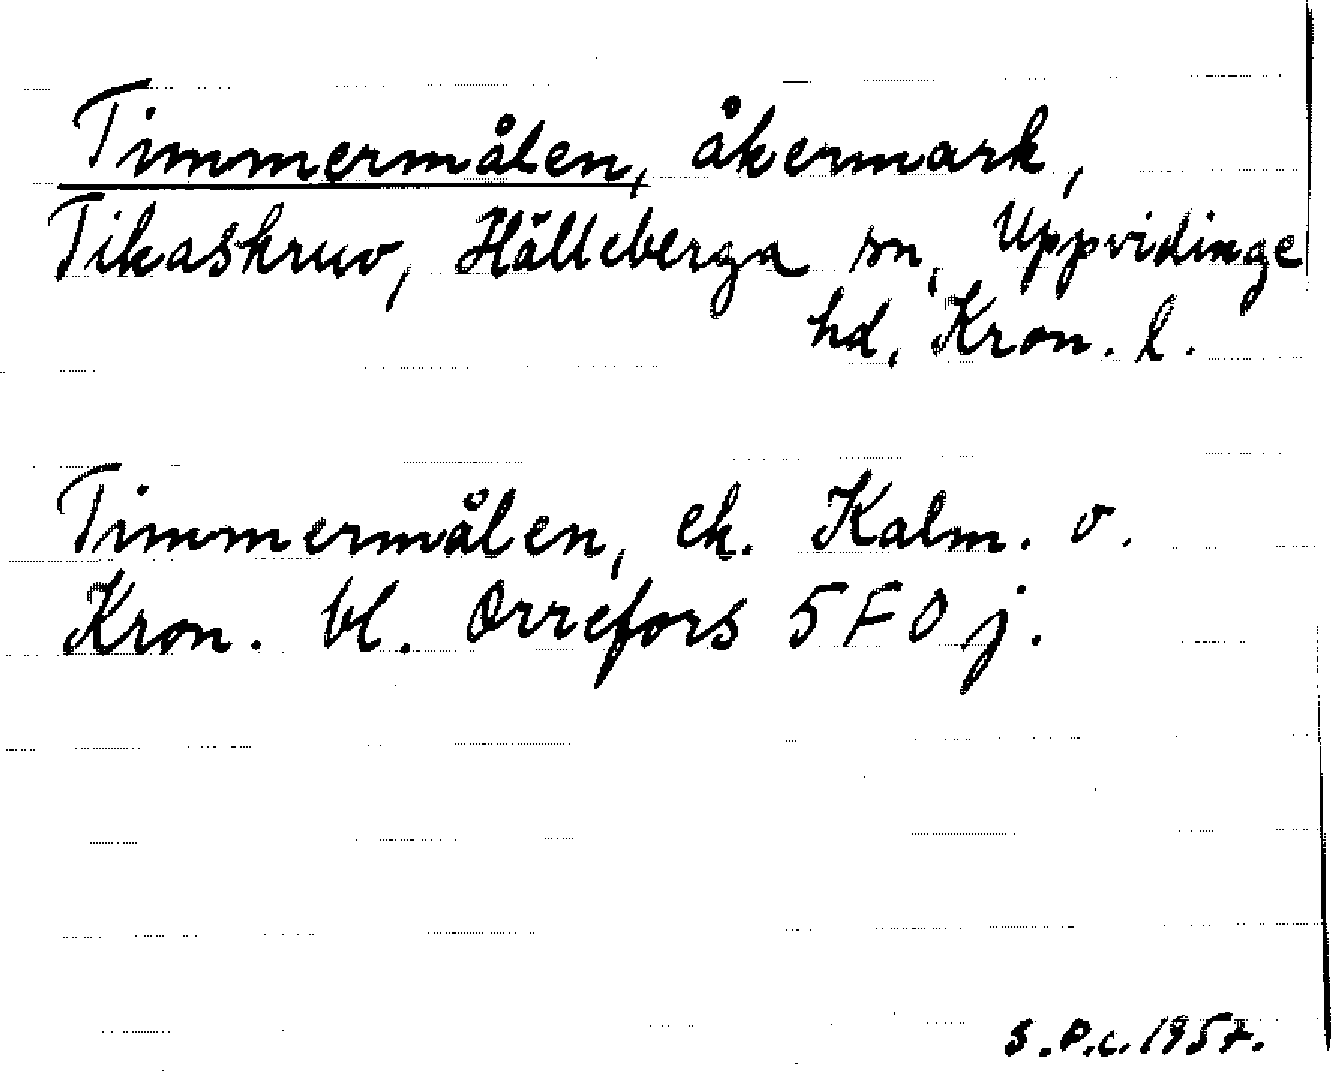 Timmermålen, åkermark,
Tikaskruv, Hälleberga sn, Uppvidinge
hd, Kron. l.
Timmermålen, ek. Kalm. o.
Kron. bl. Orrefors 5 F 0 j.
S.P.c. 1957.